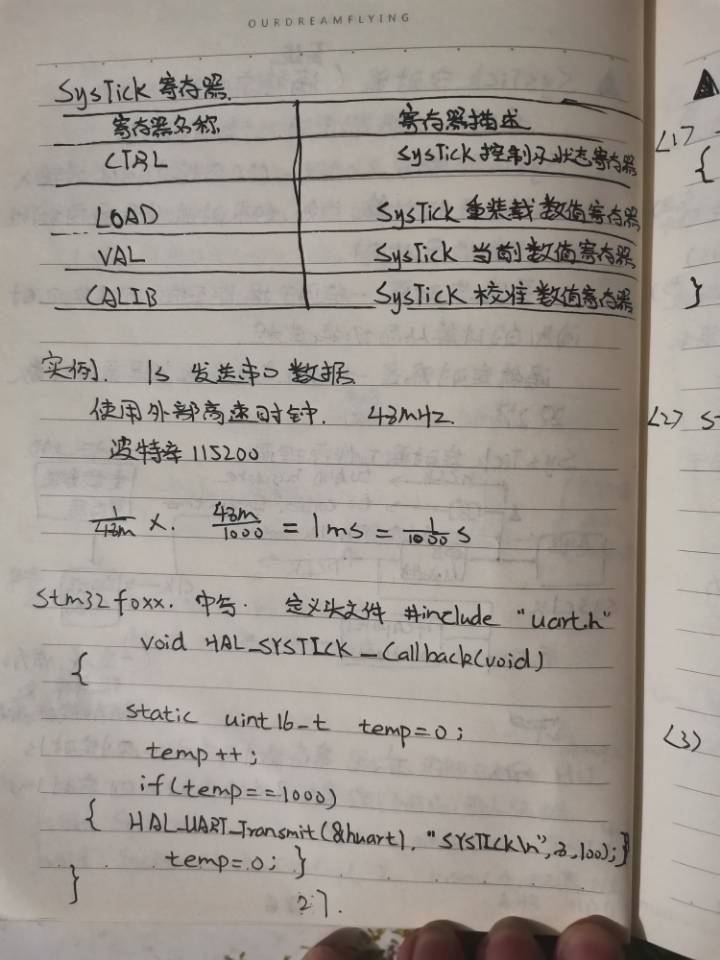 OURDREAMFLYING
SysTick 寄存器.
寄存器名称 寄存器描述
CTRL SysTick 控制及状态寄存器
LOAD SysTick 重装载数值寄存器
VAL SysTick 当前数值寄存器
CALIB SysTick 校准数值寄存器
实例. 1s 发送串口数据
使用外部高速时钟. 48mHz.
波特率 115200
1/48m ×. 48m/1000 = 1ms = 1/1000 s
Stm32f0xx. 中写. 定义头文件 #include "uart.h"
void HAL_SYSTICK_Callback(void)
{
static uint16_t temp=0;
temp++;
if(temp==1000)
{ HAL_UART_Transmit(&huart1, "SYSTICK\n", 8, 100);}
temp=0; }
}
27.
(1)
{
}
(2) S
(3)